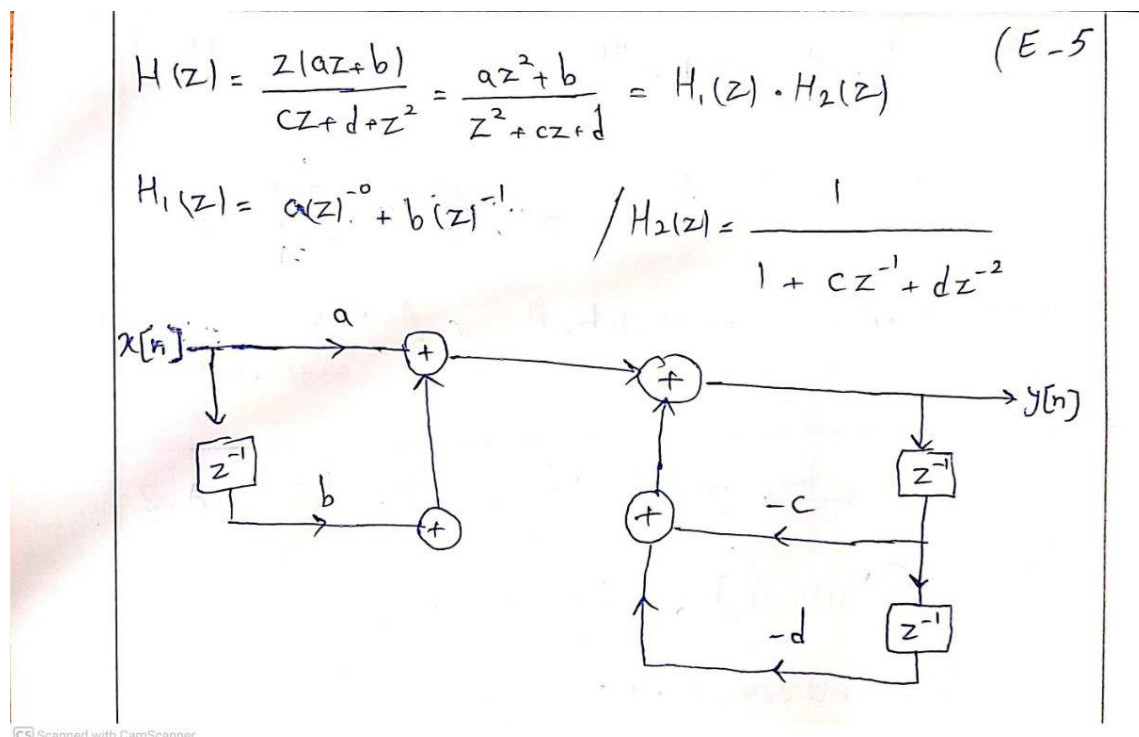 (E-5
H(z) = z(az+b) / cz+d+z² = az²+b / z²+cz+d = H₁(z) · H₂(z)
H₁(z) = a(z)⁻⁰ + b(z)⁻¹ / H₂(z) = 1 / 1 + cz⁻¹ + dz⁻²
a
x[n] + + y[n]
z⁻¹ z⁻¹
b -c
+ +
-d z⁻¹
CS Scanned with CamScanner